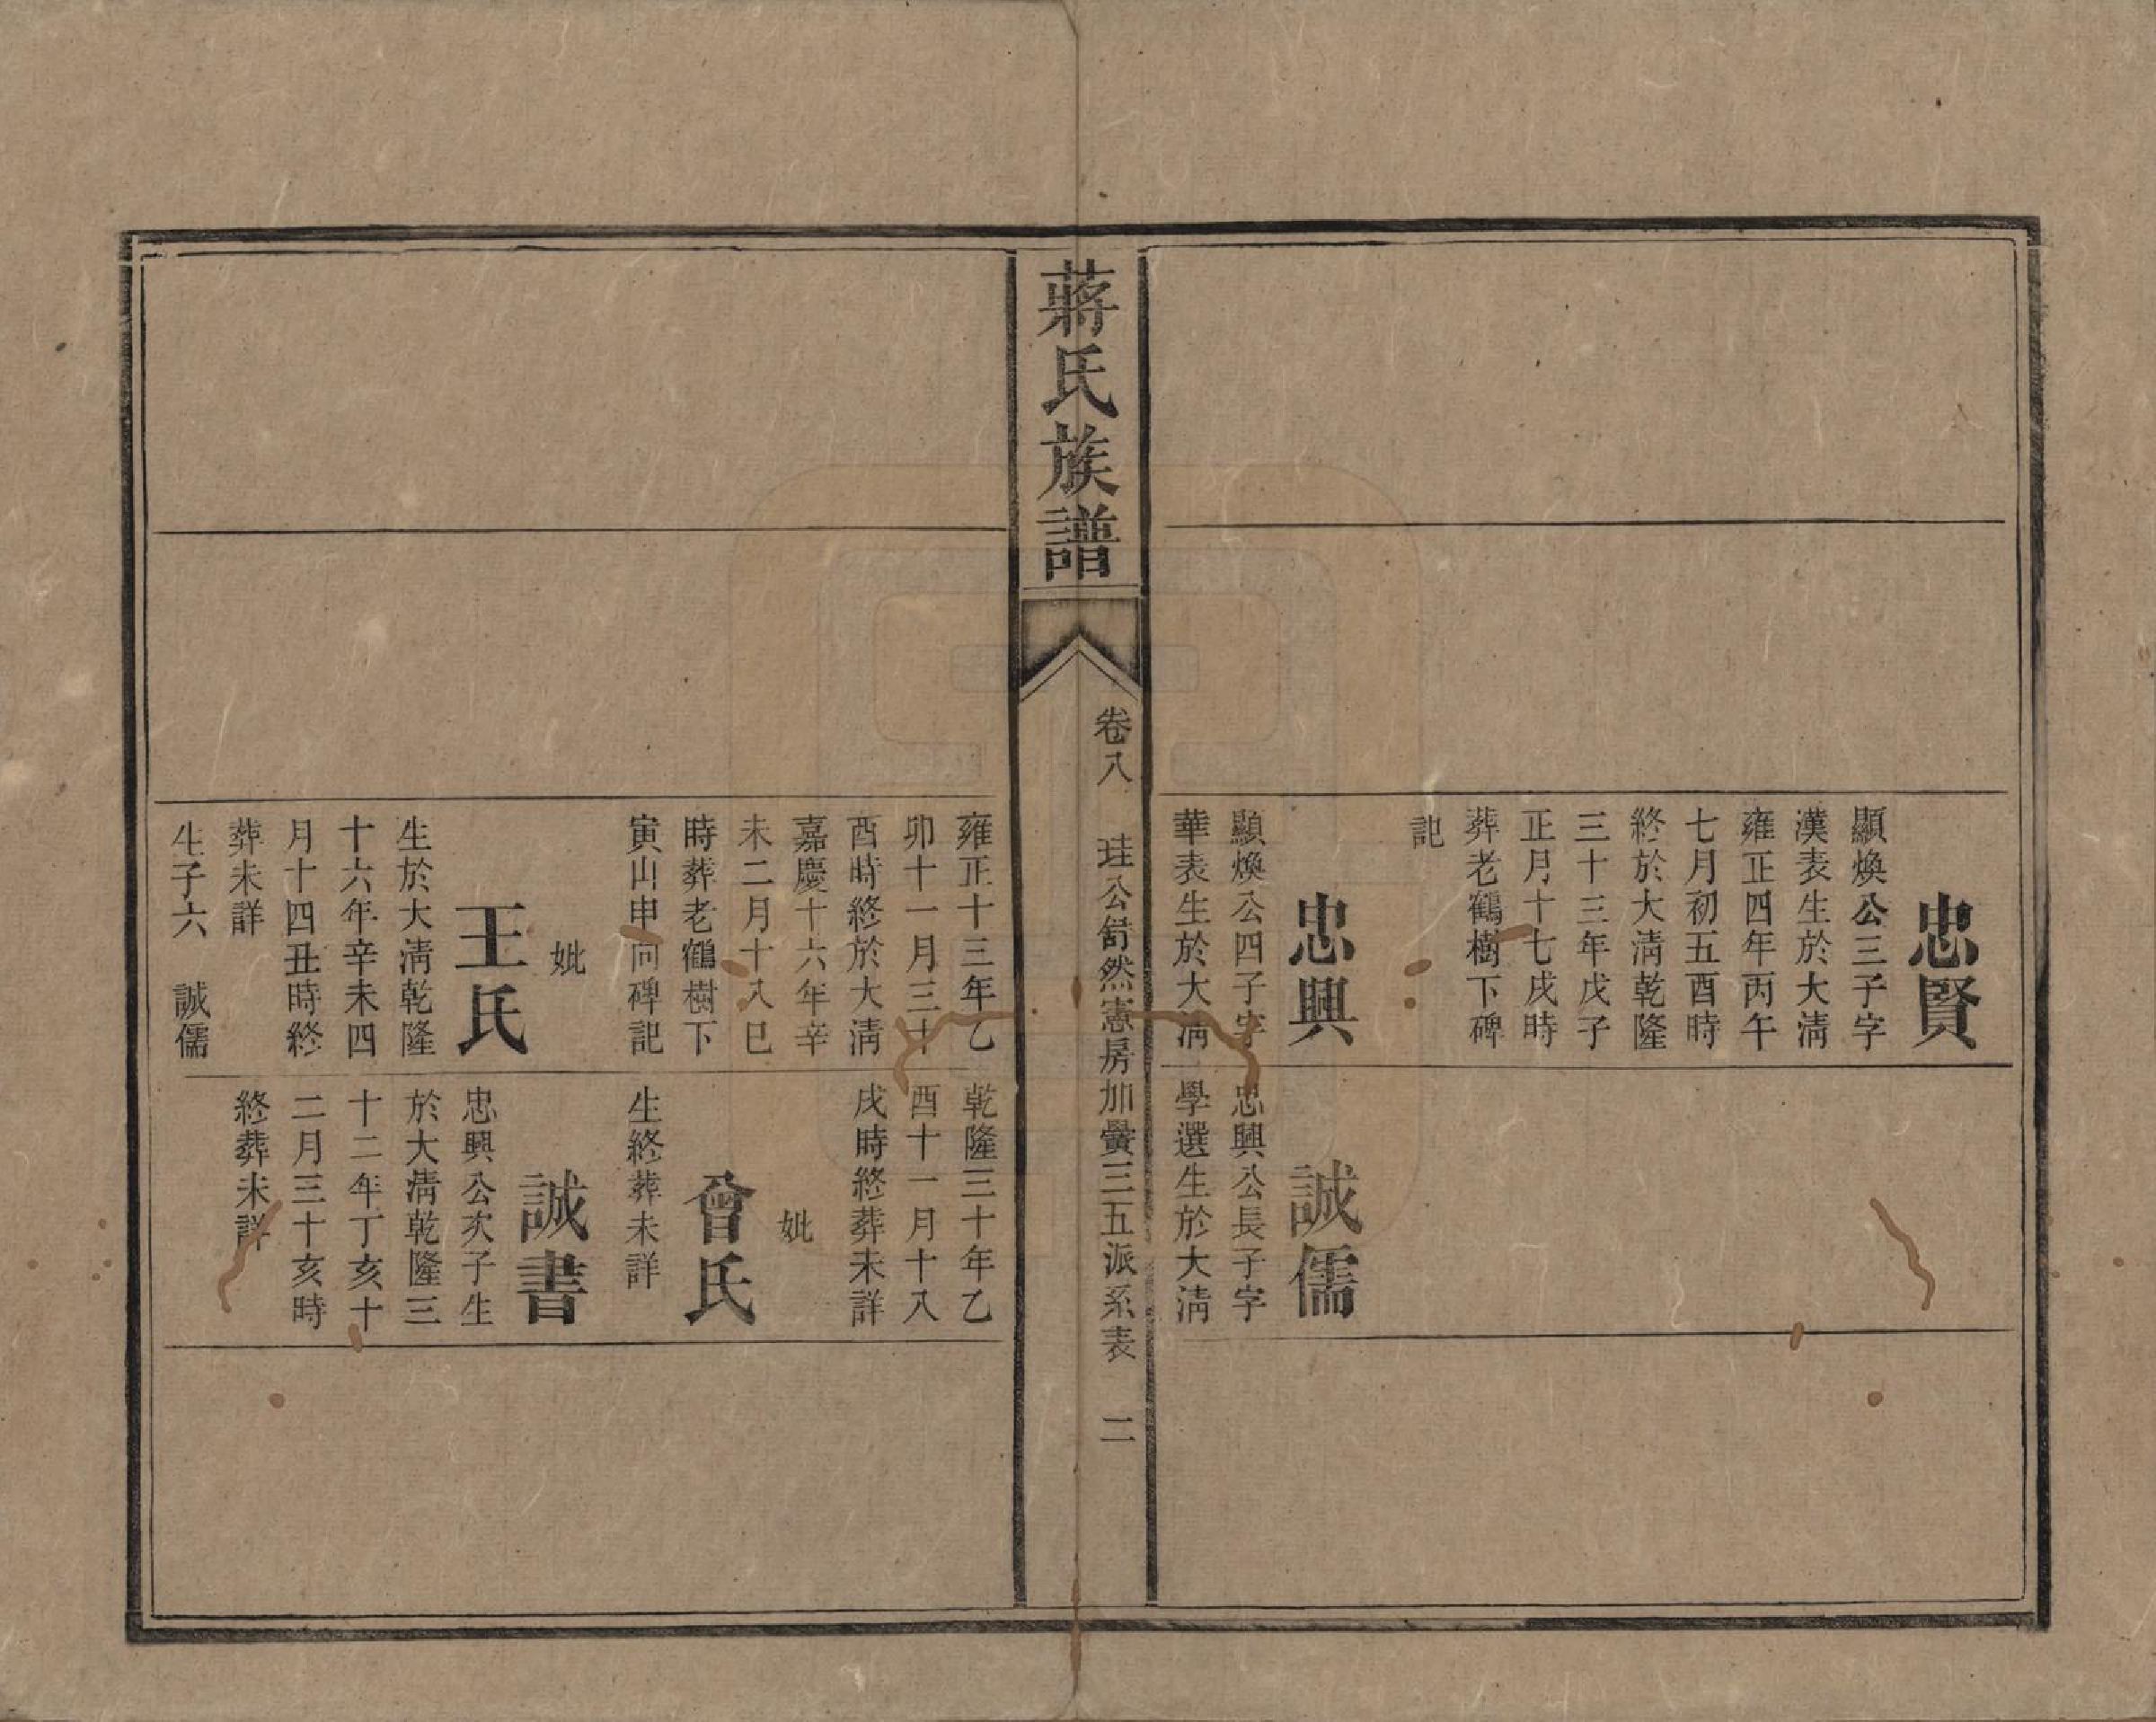 忠賢
顯煥公三子字
漢表生於大清
雍正四年丙午
七月初五酉時
終於大清乾隆
三十三年戊子
正月十七戌時
葬老鶴樹下碑
記
忠興
顯煥公四子字
華表生於大清
誠儒
忠興公長子字
學選生於大清
蔣氏族譜
卷八
珪公舒然憲房加黌三五派系表
二
雍正十三年乙
卯十一月三十
酉時終於大清
嘉慶十六年辛
未二月十八巳
時葬老鶴樹下
寅山申向碑記
妣
王氏
生於大清乾隆
十六年辛未四
月十四丑時終
葬未詳
生子六 誠儒
乾隆三十年乙
酉十一月十八
戌時終葬未詳
妣
曾氏
生終葬未詳
誠書
忠興公次子生
於大清乾隆三
十二年丁亥十
二月三十亥時
終葬未詳